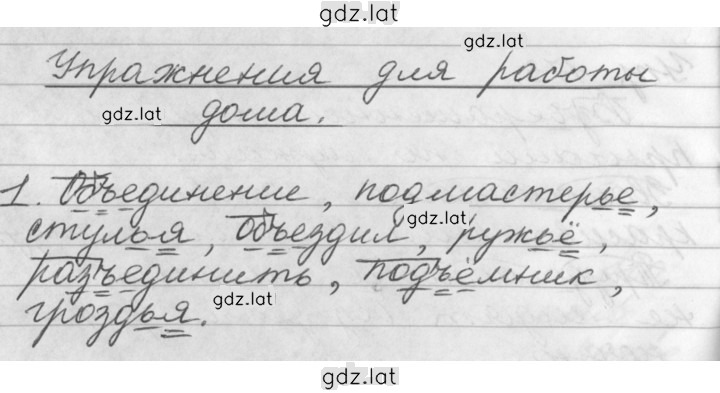 gdz.lat
gdz.lat
Упражнения для работы
gdz.lat дома.
1. Объединение, подмастерье,
gdz.lat
стулья, объездил, ружьё,
разъединить, подъёмник,
gdz.lat
гроздья.
gdz.lat